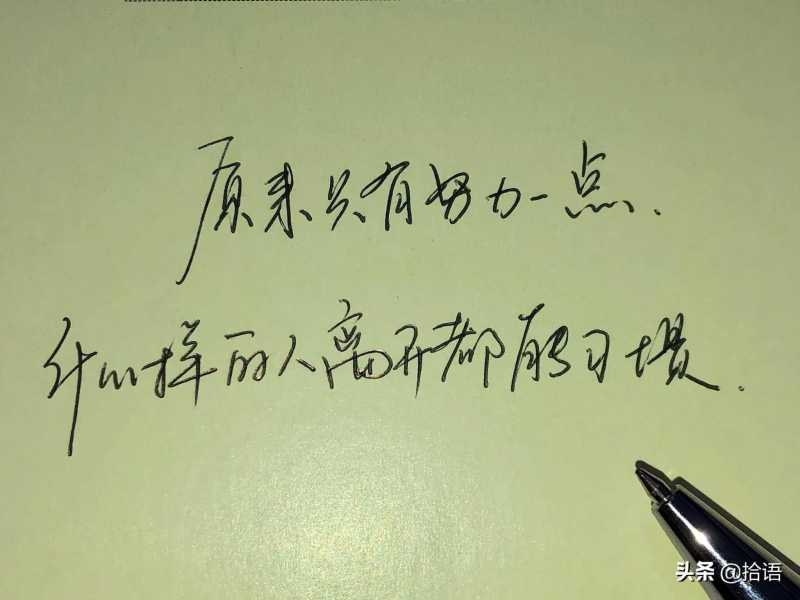 原来只有努力一点.
什么样的人离开都能习惯.
头条 @拾语